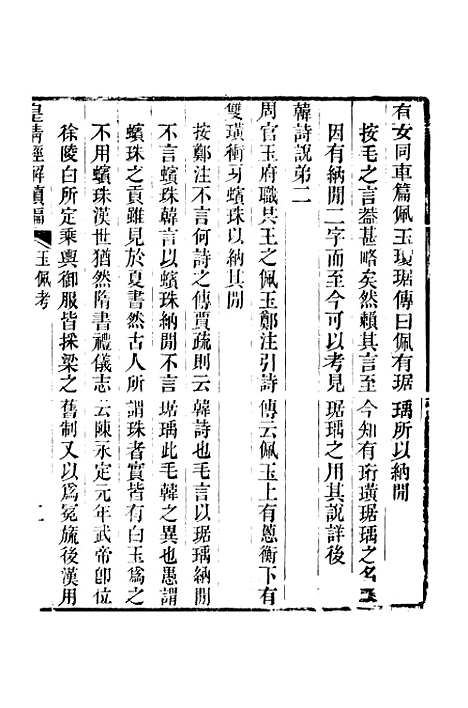 有女同車篇佩玉瓊琚傳曰佩有琚瑀所以納閒
按毛之言葢甚略矣然賴其言至今知有珩璜琚瑀之名又
因有納閒二字而至今可以考見琚瑀之用其說詳後
韓詩說弟二
周官玉府職共王之佩玉鄭注引詩傳云佩玉上有蔥衡下有
雙璜衝牙蠙珠以納其閒
按鄭注不言何詩之傳賈疏則云韓詩也毛言以琚瑀納閒
不言蠙珠韓言以蠙珠納閒不言琚瑀此毛韓之異也愚謂
蠙珠之貢雖見於夏書然古人所謂珠者實皆有白玉爲之
不用蠙珠漢世猶然隋書禮儀志云陳永定元年武帝卽位
徐陵白所定乘輿御服皆採梁之舊制又以爲冕旒後漢用
皇淸經解續編
玉佩考
二